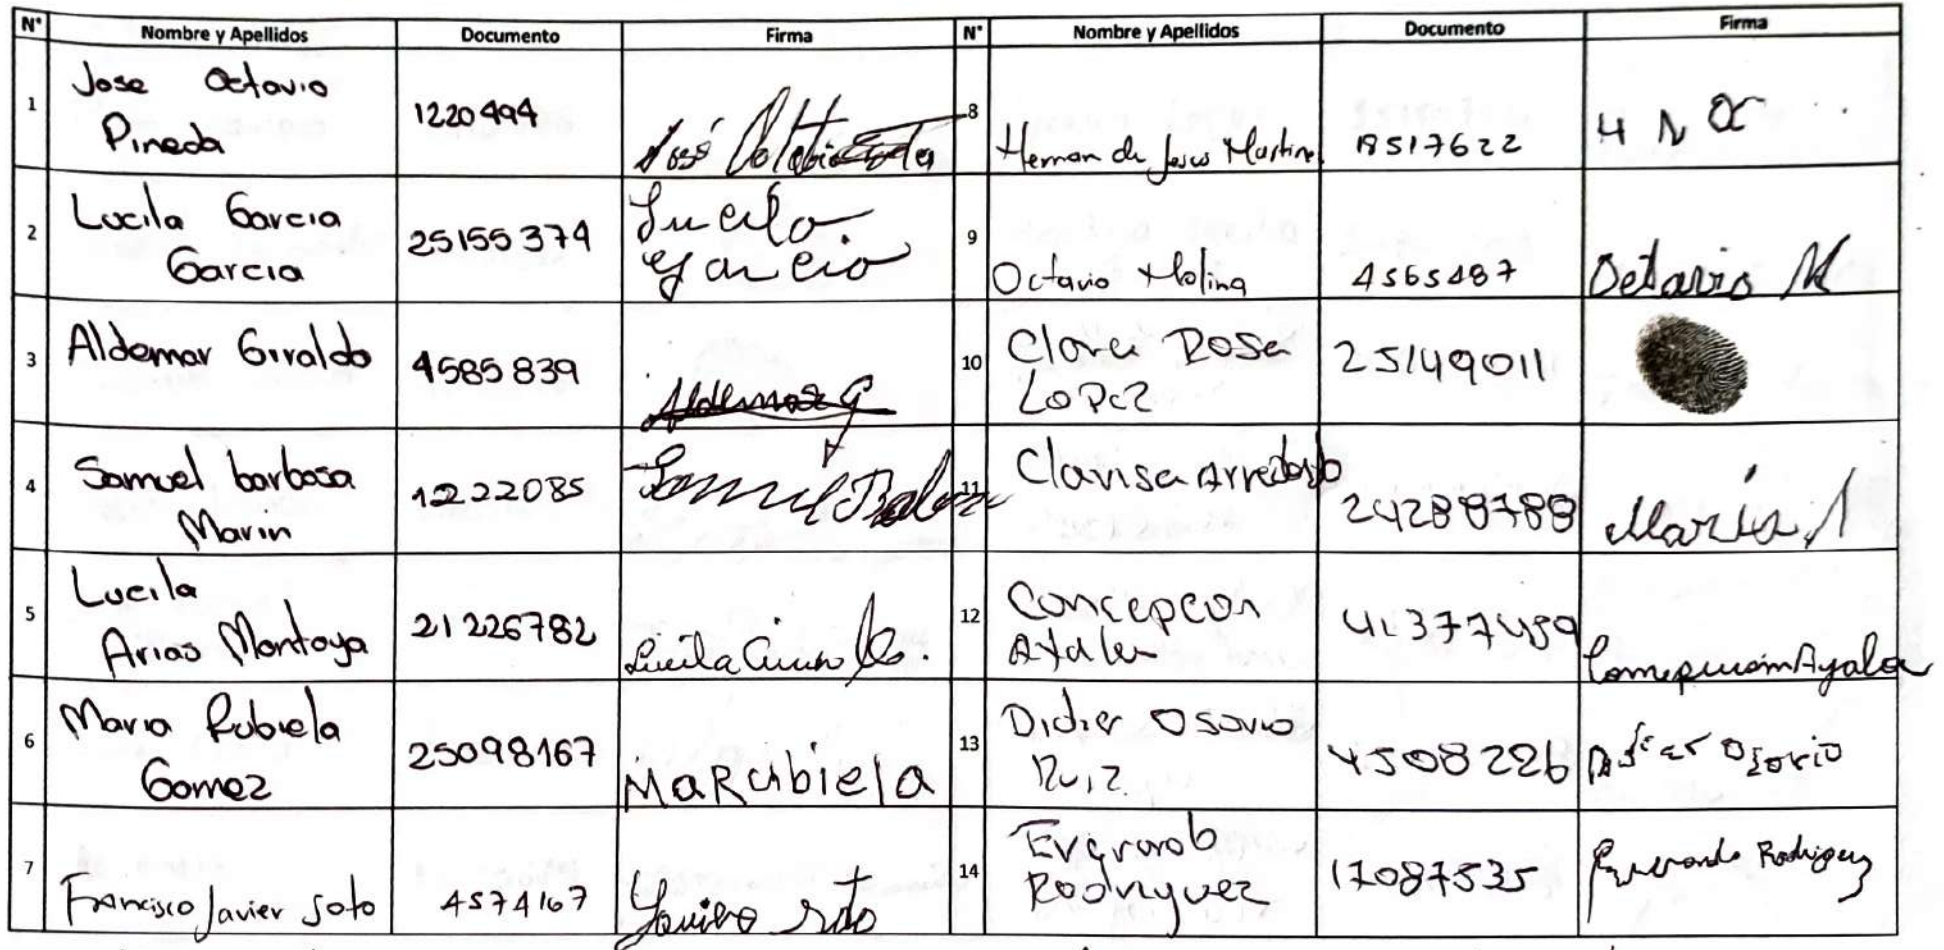 N° Nombre y Apellidos Documento Firma N° Nombre y Apellidos Documento Firma
1 Jose Octavio
Pineda 1220494 José
8 Hernan de Jesus Martine 18517622 H N
2 Lucila Garcia
Garcia 25155374 Lucila
Garcia
9 Octavio Molina 4565487 Octavio M
3 Aldemar Giraldo 4585839 Aldemar G
10 Clara Rosa
Lopez 25149011
4 Samuel barbosa
Marin 1222085 Samuel
11 Clarisa Arredondo 24288788 Maria
5 Lucila
Arias Montoya 21226782 Lucila
12 Concepcion
Ayala 41377489 Concepción Ayala
6 Maria Rubiela
Gomez 25098167 MaRubiela
13 Didier Osorio
Ruiz 4508226 Osorio
7 Francisco Javier Soto 4574167 Soto
14 Evgrardo
Rodriguez 17087535 Rodriguez